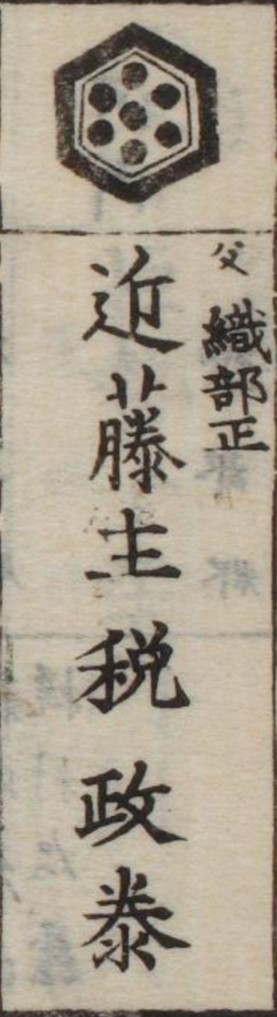 父 織部正
近藤主税政泰